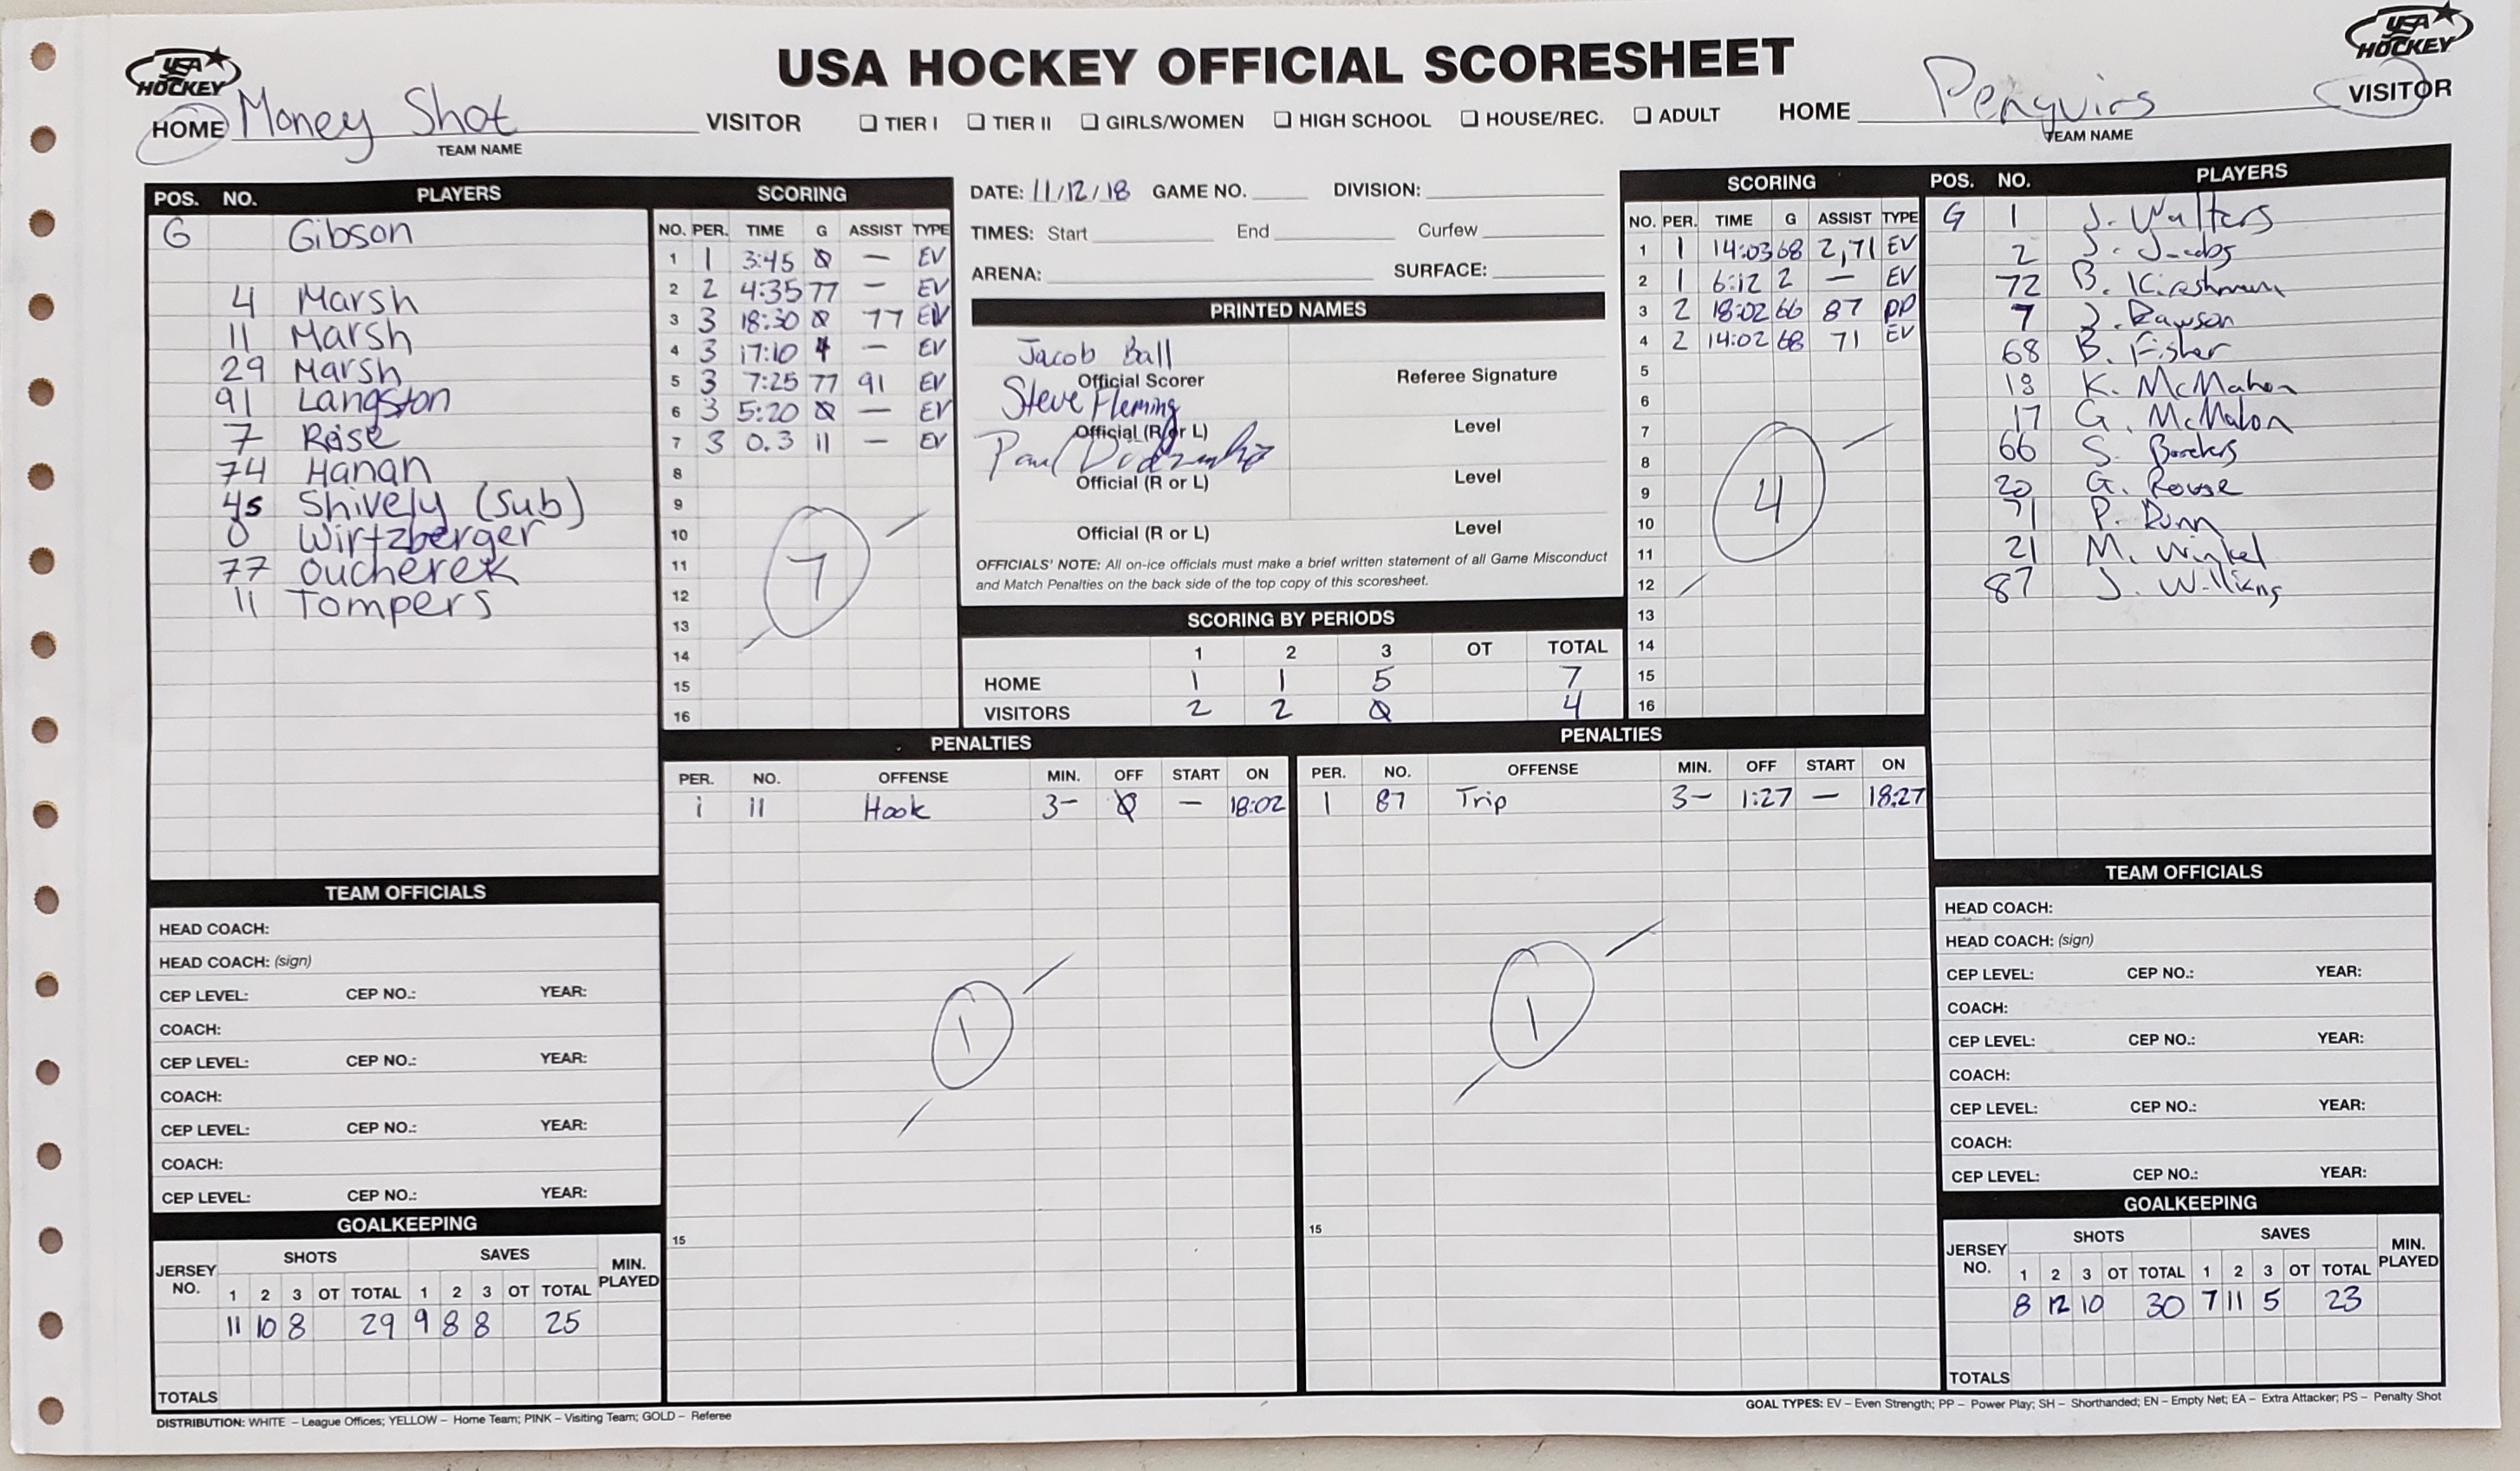 USA HOCKEY
USA HOCKEY OFFICIAL SCORESHEET
USA HOCKEY
HOME Money Shot VISITOR ☐ TIER I ☐ TIER II ☐ GIRLS/WOMEN ☐ HIGH SCHOOL ☐ HOUSE/REC. ☐ ADULT HOME Penguins VISITOR
TEAM NAME
TEAM NAME
POS. NO. PLAYERS
G Gibson
4 Marsh
11 Marsh
29 Marsh
91 Langston
7 Rose
74 Hanan
45 Shively (Sub)
0 Wirtzberger
77 Oucherek
11 Tompers
SCORING
NO. PER. TIME G ASSIST TYPE
1 1 3:45 0 — EV
2 2 4:35 77 — EV
3 3 18:30 0 77 EV
4 3 17:10 4 — EV
5 3 7:25 77 91 EV
6 3 5:20 0 — EV
7 3 0.3 11 — EV
8
9
10
11
12
13
14
15
16
7
DATE: 11/12/18 GAME NO. DIVISION:
TIMES: Start End Curfew
ARENA: SURFACE:
PRINTED NAMES
Jacob Ball
Official Scorer Referee Signature
Steve Fleming
Official (R or L) Level
Paul
Official (R or L) Level
Official (R or L) Level
OFFICIALS' NOTE: All on-ice officials must make a brief written statement of all Game Misconduct
and Match Penalties on the back side of the top copy of this scoresheet.
SCORING BY PERIODS
1 2 3 OT TOTAL
HOME 1 1 5 7
VISITORS 2 2 0 4
SCORING
NO. PER. TIME G ASSIST TYPE
1 1 14:03 68 2,71 EV
2 1 6:12 2 — EV
3 2 18:02 66 87 PP
4 2 14:02 68 71 EV
5
6
7
8
9
10
11
12
13
14
15
16
4
POS. NO. PLAYERS
G 1 J. Walters
2 J. Jacobs
72 B.
7 J. Dawson
68 B. Fisher
18 K. McMahon
17 G. McMahon
66 S.
20 G. Rouse
71 P. Dunn
21 M. Winkel
87 J. Williams
PENALTIES
PER. NO. OFFENSE MIN. OFF START ON
1 11 Hook 3— 0 — 18:02
15
1
PENALTIES
PER. NO. OFFENSE MIN. OFF START ON
1 87 Trip 3— 1:27 — 18:27
15
1
TEAM OFFICIALS
HEAD COACH:
HEAD COACH: (sign)
CEP LEVEL: CEP NO.: YEAR:
COACH:
CEP LEVEL: CEP NO.: YEAR:
COACH:
CEP LEVEL: CEP NO.: YEAR:
COACH:
CEP LEVEL: CEP NO.: YEAR:
GOALKEEPING
JERSEY NO. SHOTS SAVES MIN. PLAYED
1 2 3 OT TOTAL 1 2 3 OT TOTAL
11 10 8 29 9 8 8 25
TOTALS
TEAM OFFICIALS
HEAD COACH:
HEAD COACH: (sign)
CEP LEVEL: CEP NO.: YEAR:
COACH:
CEP LEVEL: CEP NO.: YEAR:
COACH:
CEP LEVEL: CEP NO.: YEAR:
COACH:
CEP LEVEL: CEP NO.: YEAR:
GOALKEEPING
JERSEY NO. SHOTS SAVES MIN. PLAYED
1 2 3 OT TOTAL 1 2 3 OT TOTAL
8 12 10 30 7 11 5 23
TOTALS
DISTRIBUTION: WHITE – League Offices; YELLOW – Home Team; PINK – Visiting Team; GOLD – Referee
GOAL TYPES: EV – Even Strength; PP – Power Play; SH – Shorthanded; EN – Empty Net; EA – Extra Attacker; PS – Penalty Shot